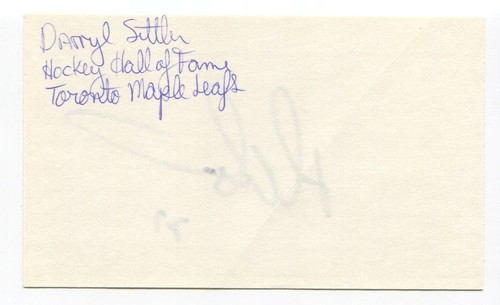 Darryl Sittler
Hockey Hall of Fame
Toronto Maple Leafs